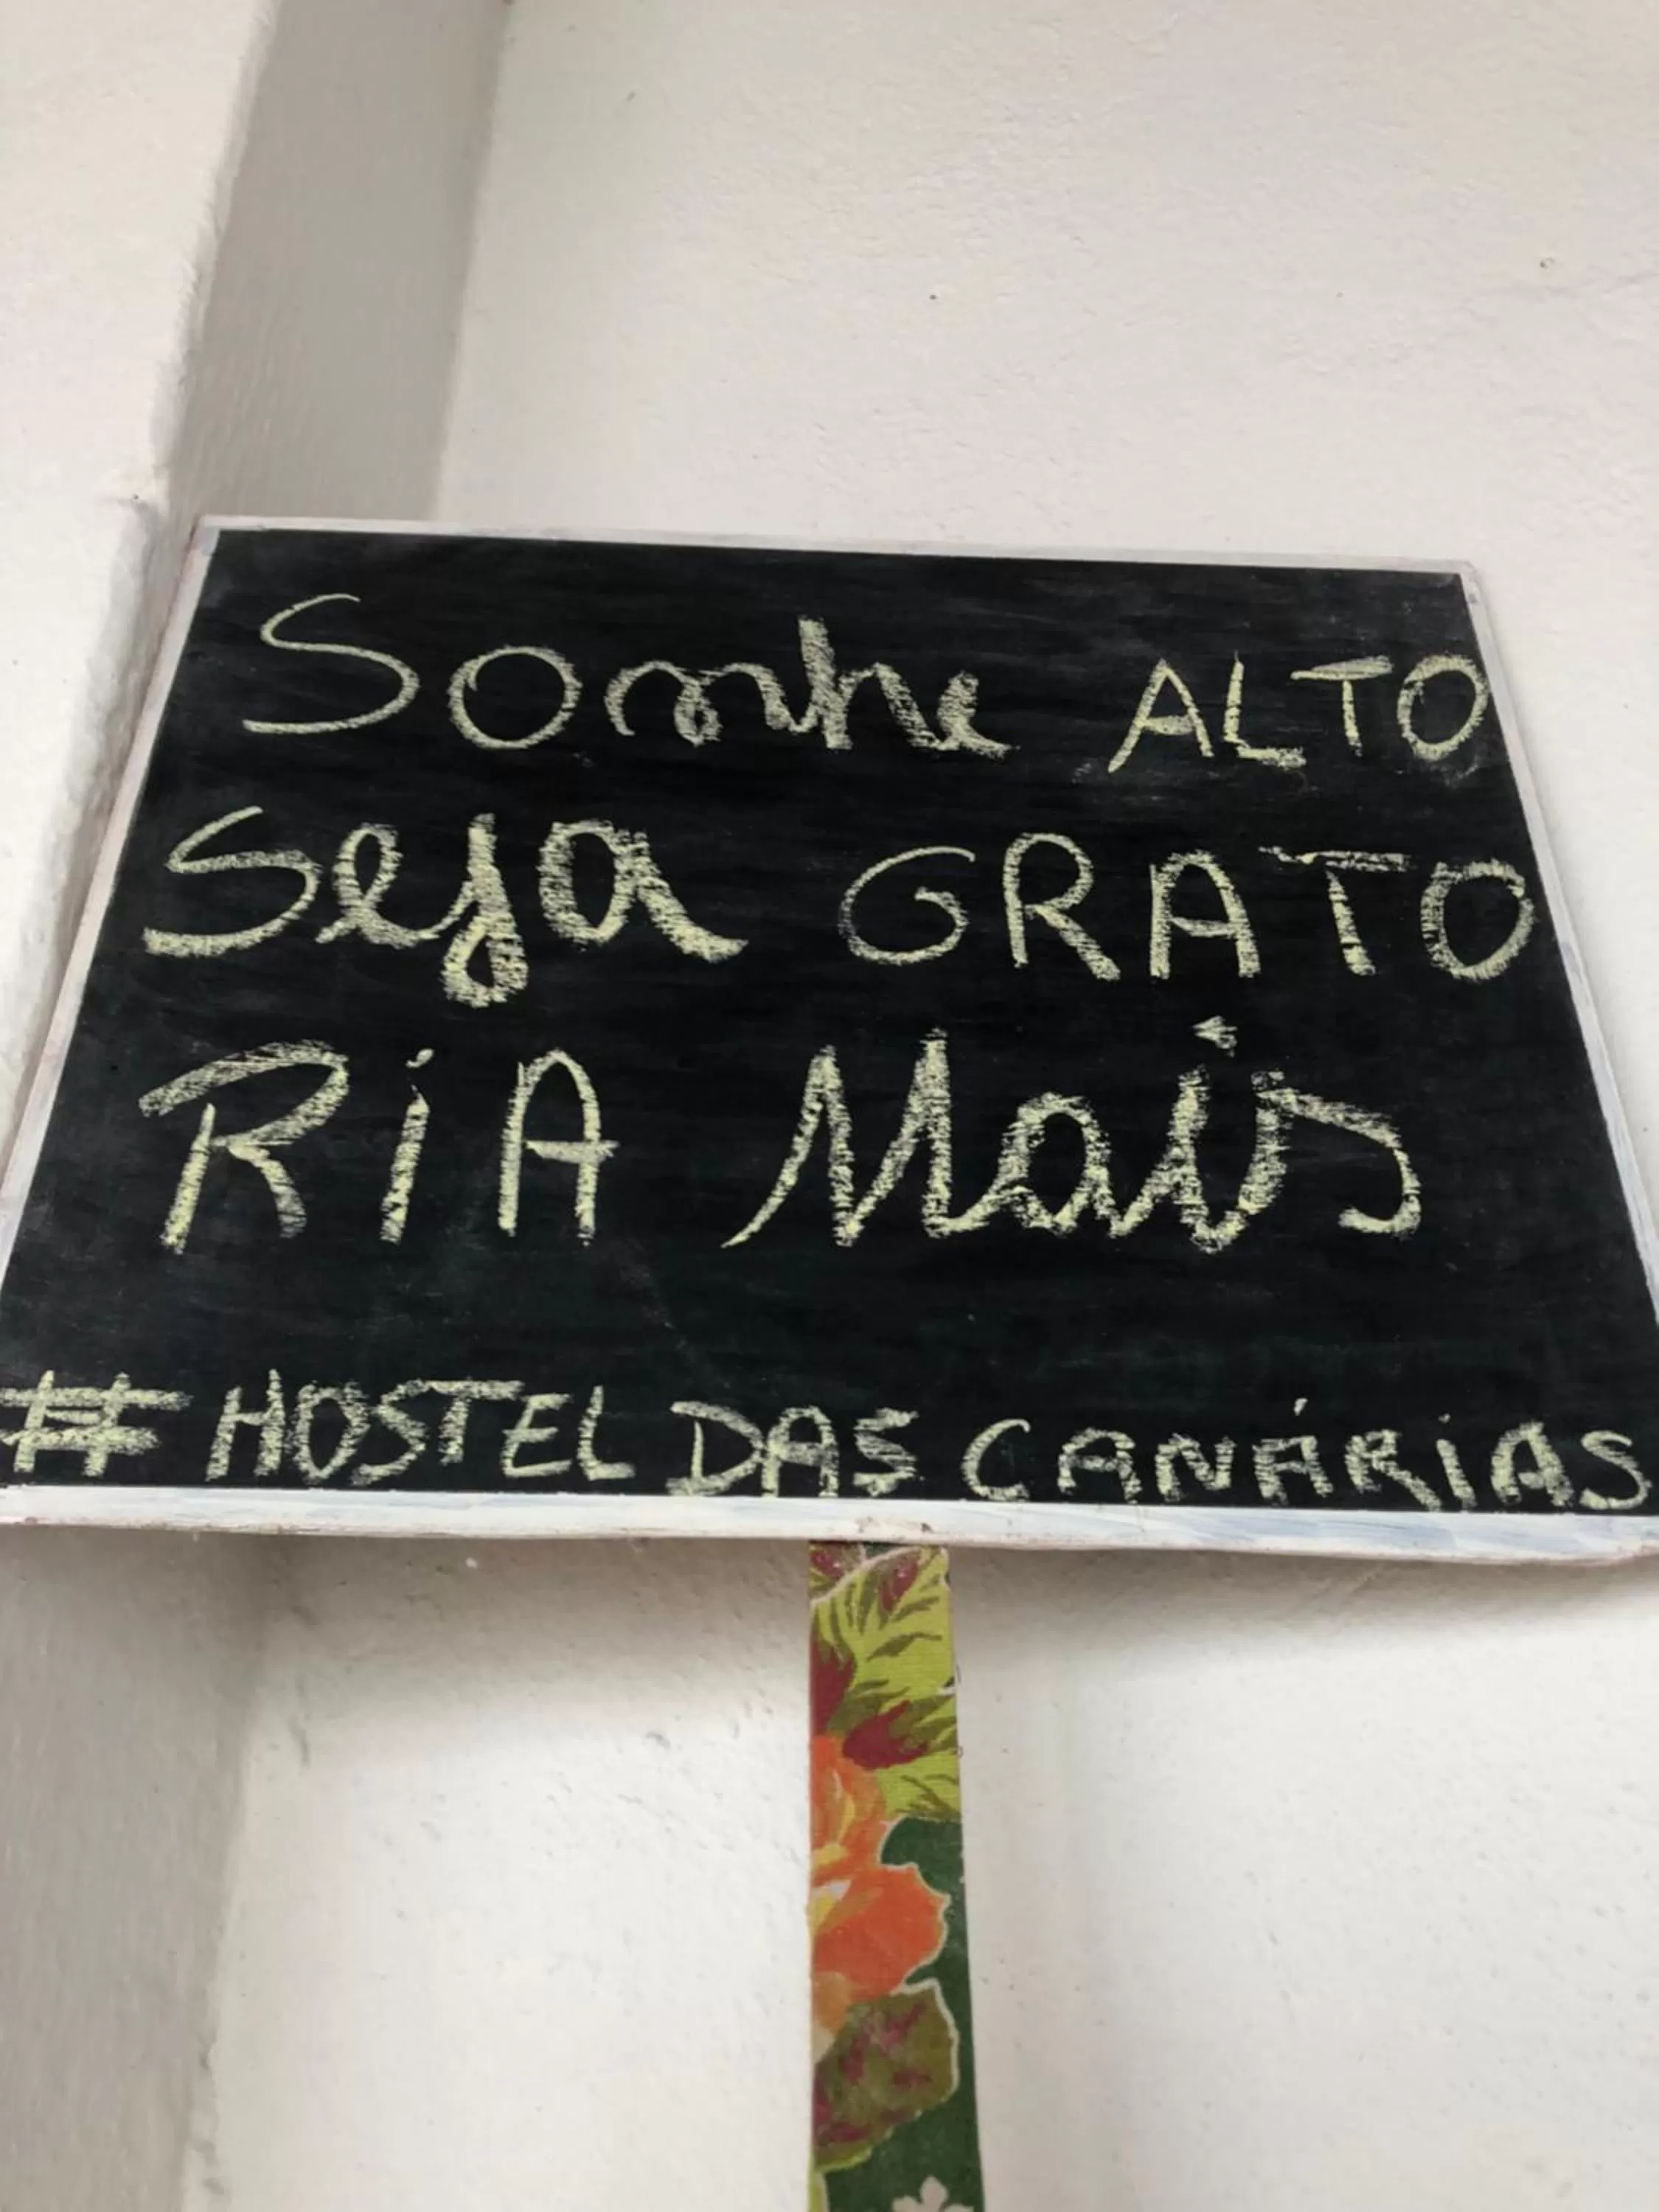 Sonhe ALTO
Seja GRATO
RiA Mais
# HOSTEL DAS CANÁRiAS